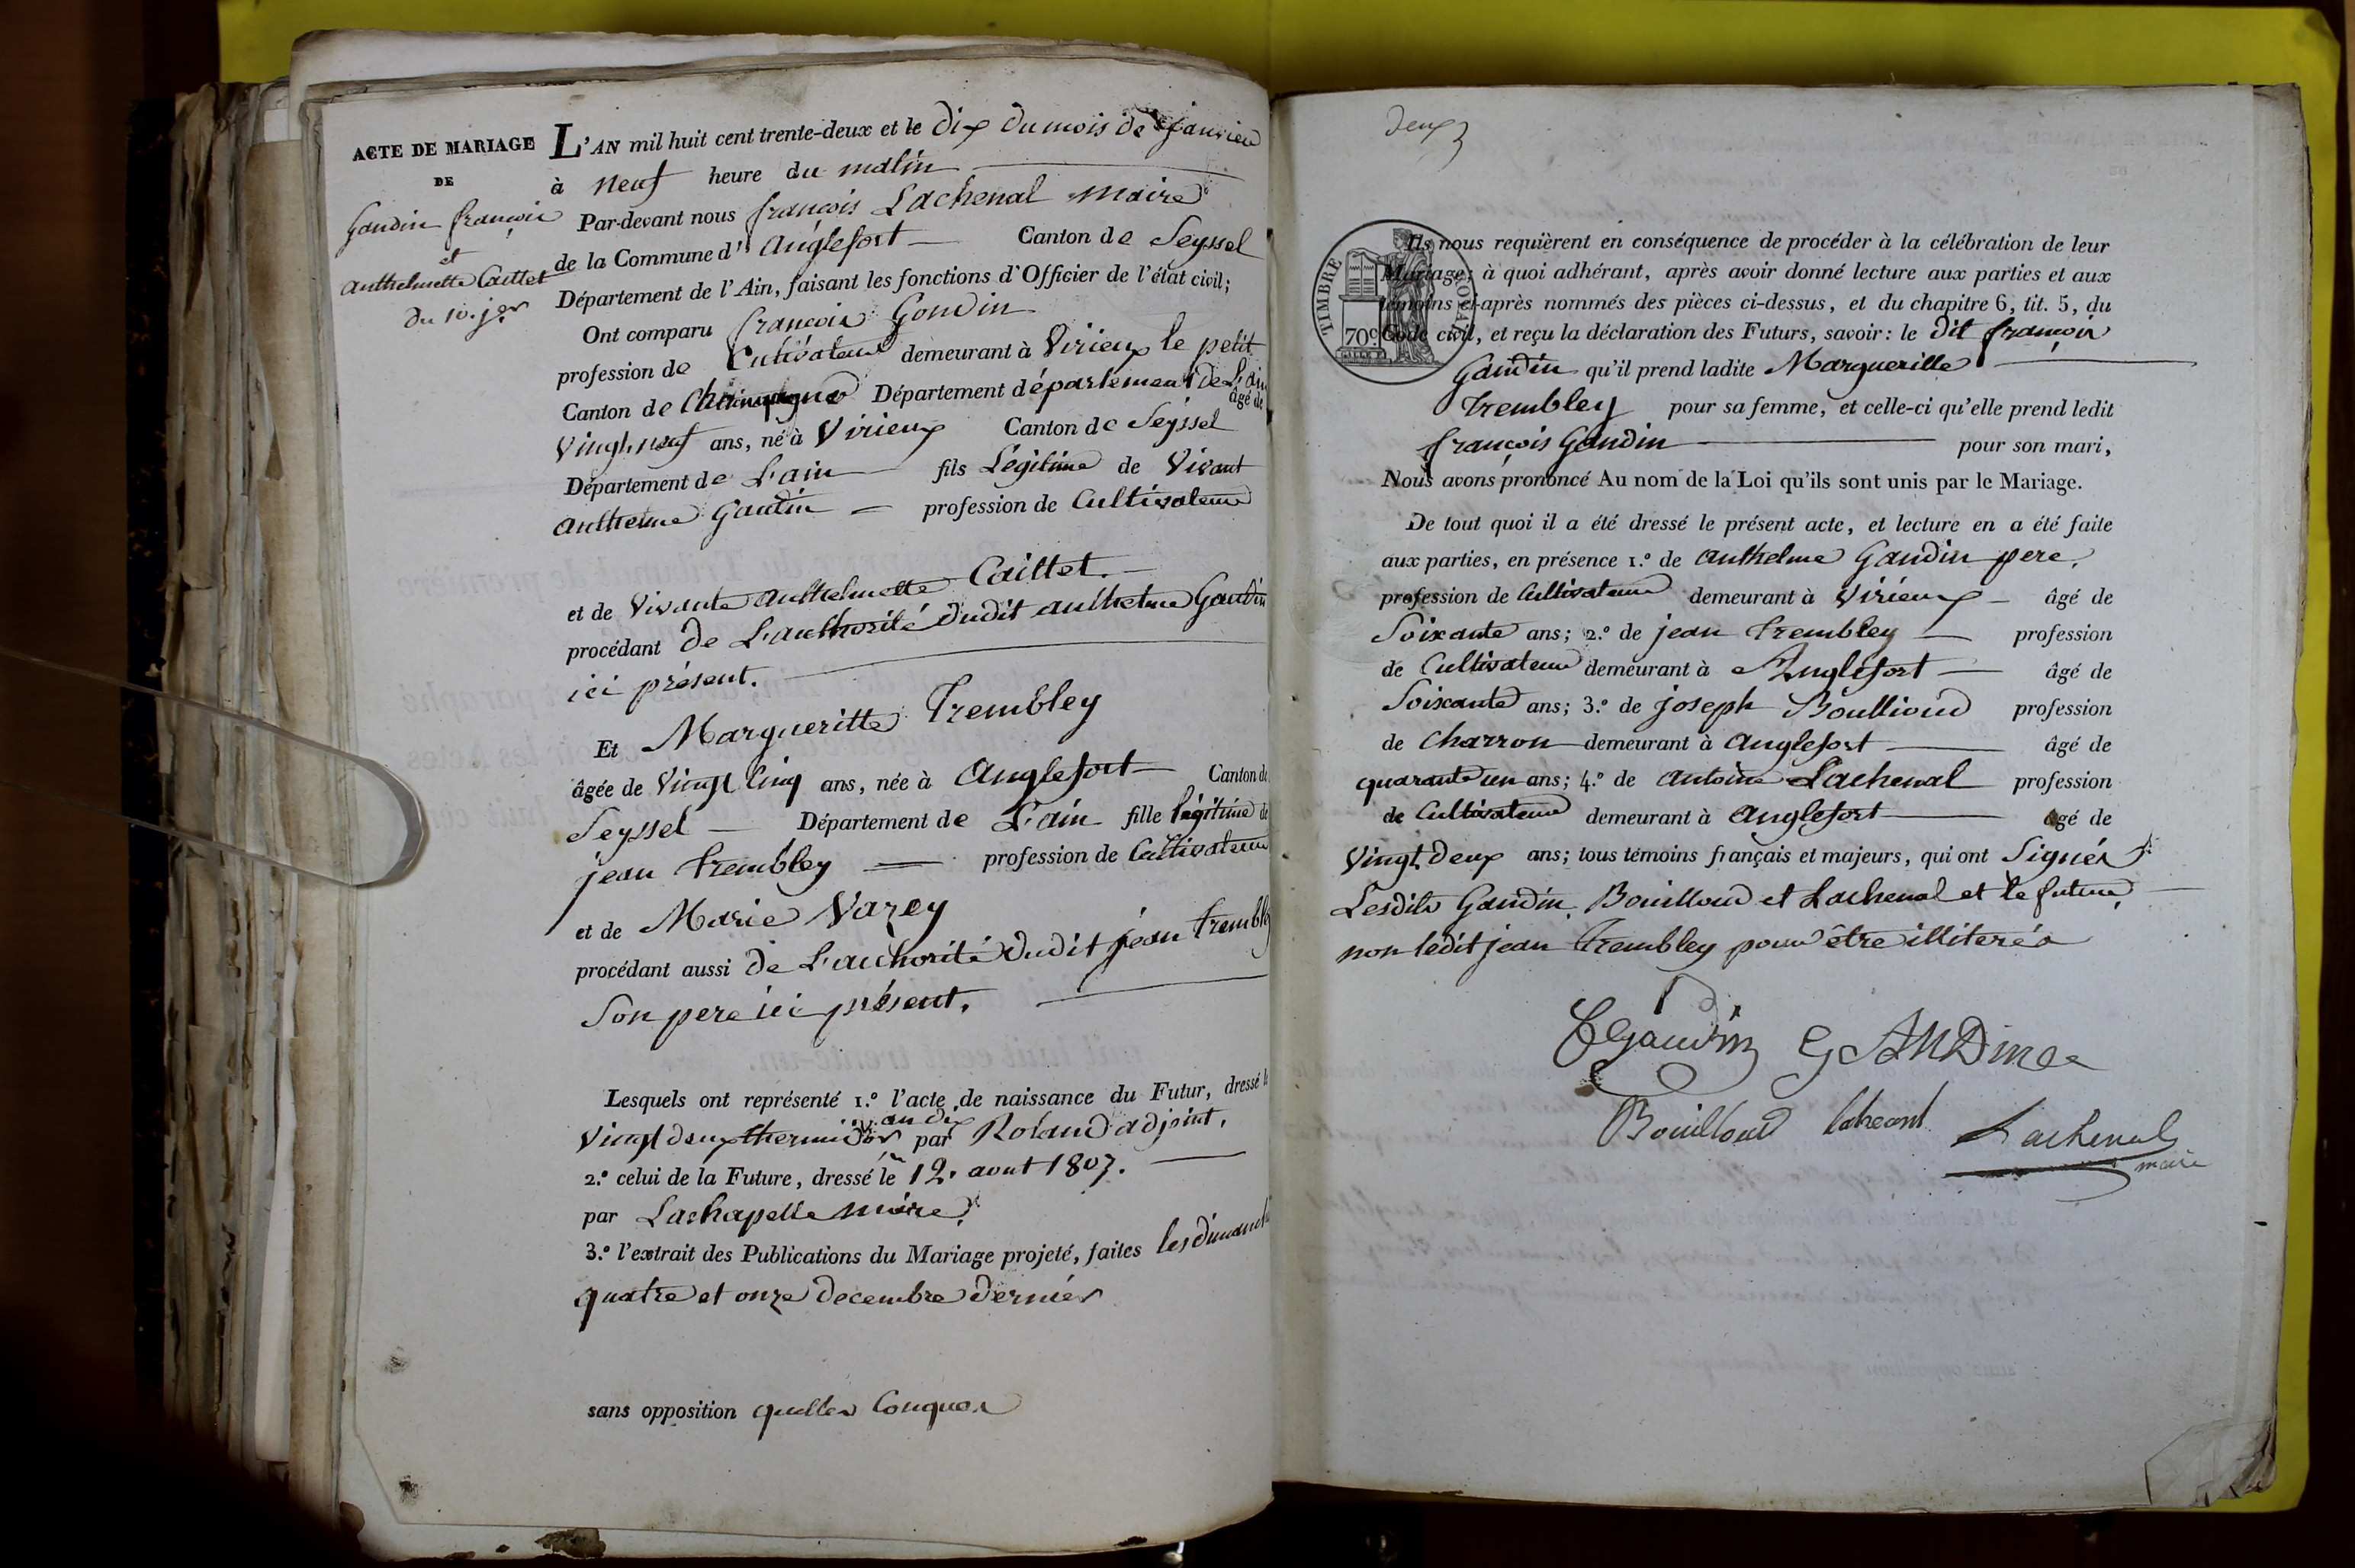 ACTE DE MARIAGE
DE
Gandin françois
et
anthelmette Caillet
du 10. jer
L'AN mil huit cent trente-deux et le dix du mois de janvier
à neuf heure du matin
Par-devant nous françois Lachenal maire
de la Commune d' Anglefort Canton de Seyssel
Département de l'Ain, faisant les fonctions d'Officier de l'état civil;
Ont comparu françois Gondin
profession de Cultivateur demeurant à Virieux le petit
Canton de Département département de L'ain
âgé de
vingt neuf ans, né à Virieux Canton de Seyssel
Département de L'ain fils Légitime de Vivant
anthelme Gandin profession de Cultivateur
et de Vivante anthelmette Caillet.
procédant de L'authorité dudit anthelme Gandin
ici présent.
Et Margueritte Trembley
âgée de vingt cinq ans, née à Anglefort Canton de
Seyssel Département de L'ain fille légitime de
jean Trembley profession de Cultivateur
et de Marie Varey
procédant aussi de L'authorité dudit jean Trembley
Son pere ici présent.
Lesquels ont représenté 1.° l'acte de naissance du Futur, dressé le
an dix
vingt deux thermidor par Roland adjoint.
2.° celui de la Future, dressé le 12. aout 1807.
par Lachapelle maire
3.° l'extrait des Publications du Mariage projeté, faites les dimanche
quatre et onze decembre dernier
sans opposition quelles conques
deux
TIMBRE ROYAL
70c
Ils nous requièrent en conséquence de procéder à la célébration de leur
Mariage; à quoi adhérant, après avoir donné lecture aux parties et aux
témoins ci-après nommés des pièces ci-dessus, et du chapitre 6, tit. 5, du
Code civil, et reçu la déclaration des Futurs, savoir: le dit françois
Gandin qu'il prend ladite Margueritte
Trembley pour sa femme, et celle-ci qu'elle prend ledit
françois Gandin pour son mari,
Nous avons prononcé Au nom de la Loi qu'ils sont unis par le Mariage.
De tout quoi il a été dressé le présent acte, et lecture en a été faite
aux parties, en présence 1.° de anthelme Gandin pere,
profession de Cultivateur demeurant à Virieux âgé de
Soixante ans; 2.° de jean Trembley profession
de Cultivateur demeurant à Anglefort âgé de
Soixante ans; 3.° de joseph Boullioud profession
de Charron demeurant à anglefort âgé de
quarante un ans; 4.° de antoine Lachenal profession
de Cultivateur demeurant à Anglefort âgé de
vingt deux ans; tous témoins français et majeurs, qui ont Signés
Lesdits Gandin, Bouilloud et Lachenal et le futur,
non ledit jean Trembley pour être illiterés
Gaudin GANDIN
Bouilloud Lachenal
maire